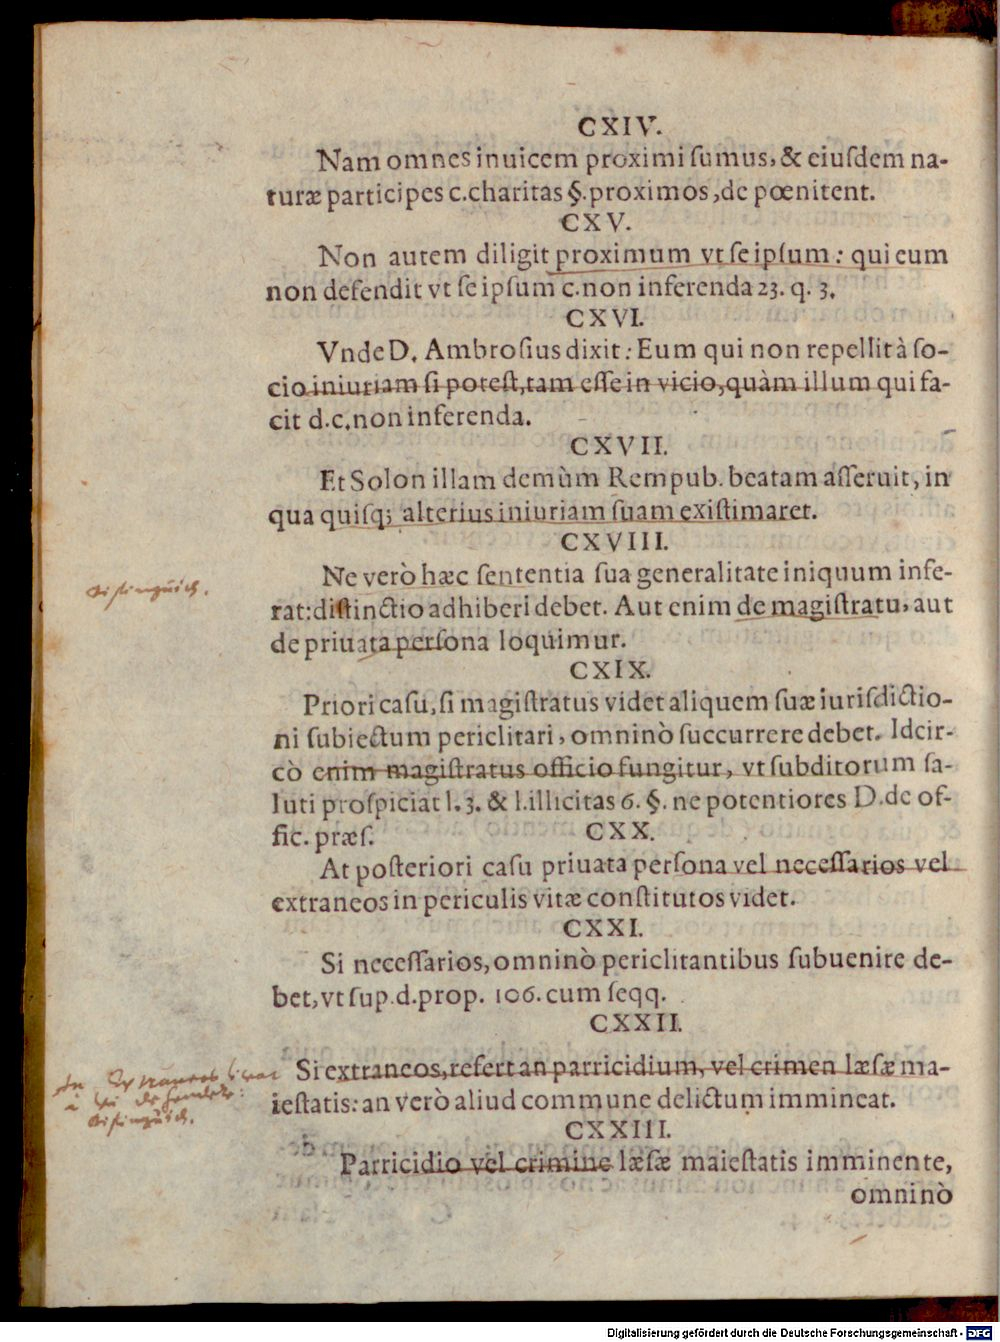 CXIV.
Nam omnes inuicem proximi ſumus, & eiuſdem na-
turæ participes c. charitas §. proximos, de pœnitent.
CXV.
Non autem diligit proximum vt ſe ipſum: qui eum
non defendit vt ſe ipſum c. non inferenda 23. q. 3.
CXVI.
Vnde D. Ambroſius dixit: Eum qui non repellit à ſo-
cio iniuriam ſi poteſt, tam eſſe in vicio, quàm illum qui fa-
cit d. c. non inferenda.
CXVII.
Et Solon illam demùm Rempub. beatam aſſeruit, in
qua quiſq; alterius iniuriam ſuam exiſtimaret.
CXVIII.
Ne verò hæc ſententia ſua generalitate iniquum infe-
rat: diſtinctio adhiberi debet. Aut enim de magiſtratu, aut
de priuata perſona loquimur.
CXIX.
Priori caſu, ſi magiſtratus videt aliquem ſuæ iurisdictio-
ni ſubiectum periclitari, omninò ſuccurrere debet. Idcir-
cò enim magiſtratus officio fungitur, vt ſubditorum ſa-
luti proſpiciat l. 3. & l. illicitas 6. §. ne potentiores D. de of-
fic. præſ.
CXX.
At poſteriori caſu priuata perſona vel neceſſarios vel
extraneos in periculis vitæ conſtitutos videt.
CXXI.
Si neceſſarios, omninò periclitantibus ſubuenire de-
bet, vt ſup. d. prop. 106. cum ſeqq.
CXXII.
Si extraneos, refert an parricidium, vel crimen læſæ ma-
ieſtatis: an verò aliud commune delictum immineat.
CXXIII.
Parricidio vel crimine læſæ maieſtatis imminente,
omninò
Digitalisierung gefördert durch die Deutsche Forschungsgemeinschaft - DFG